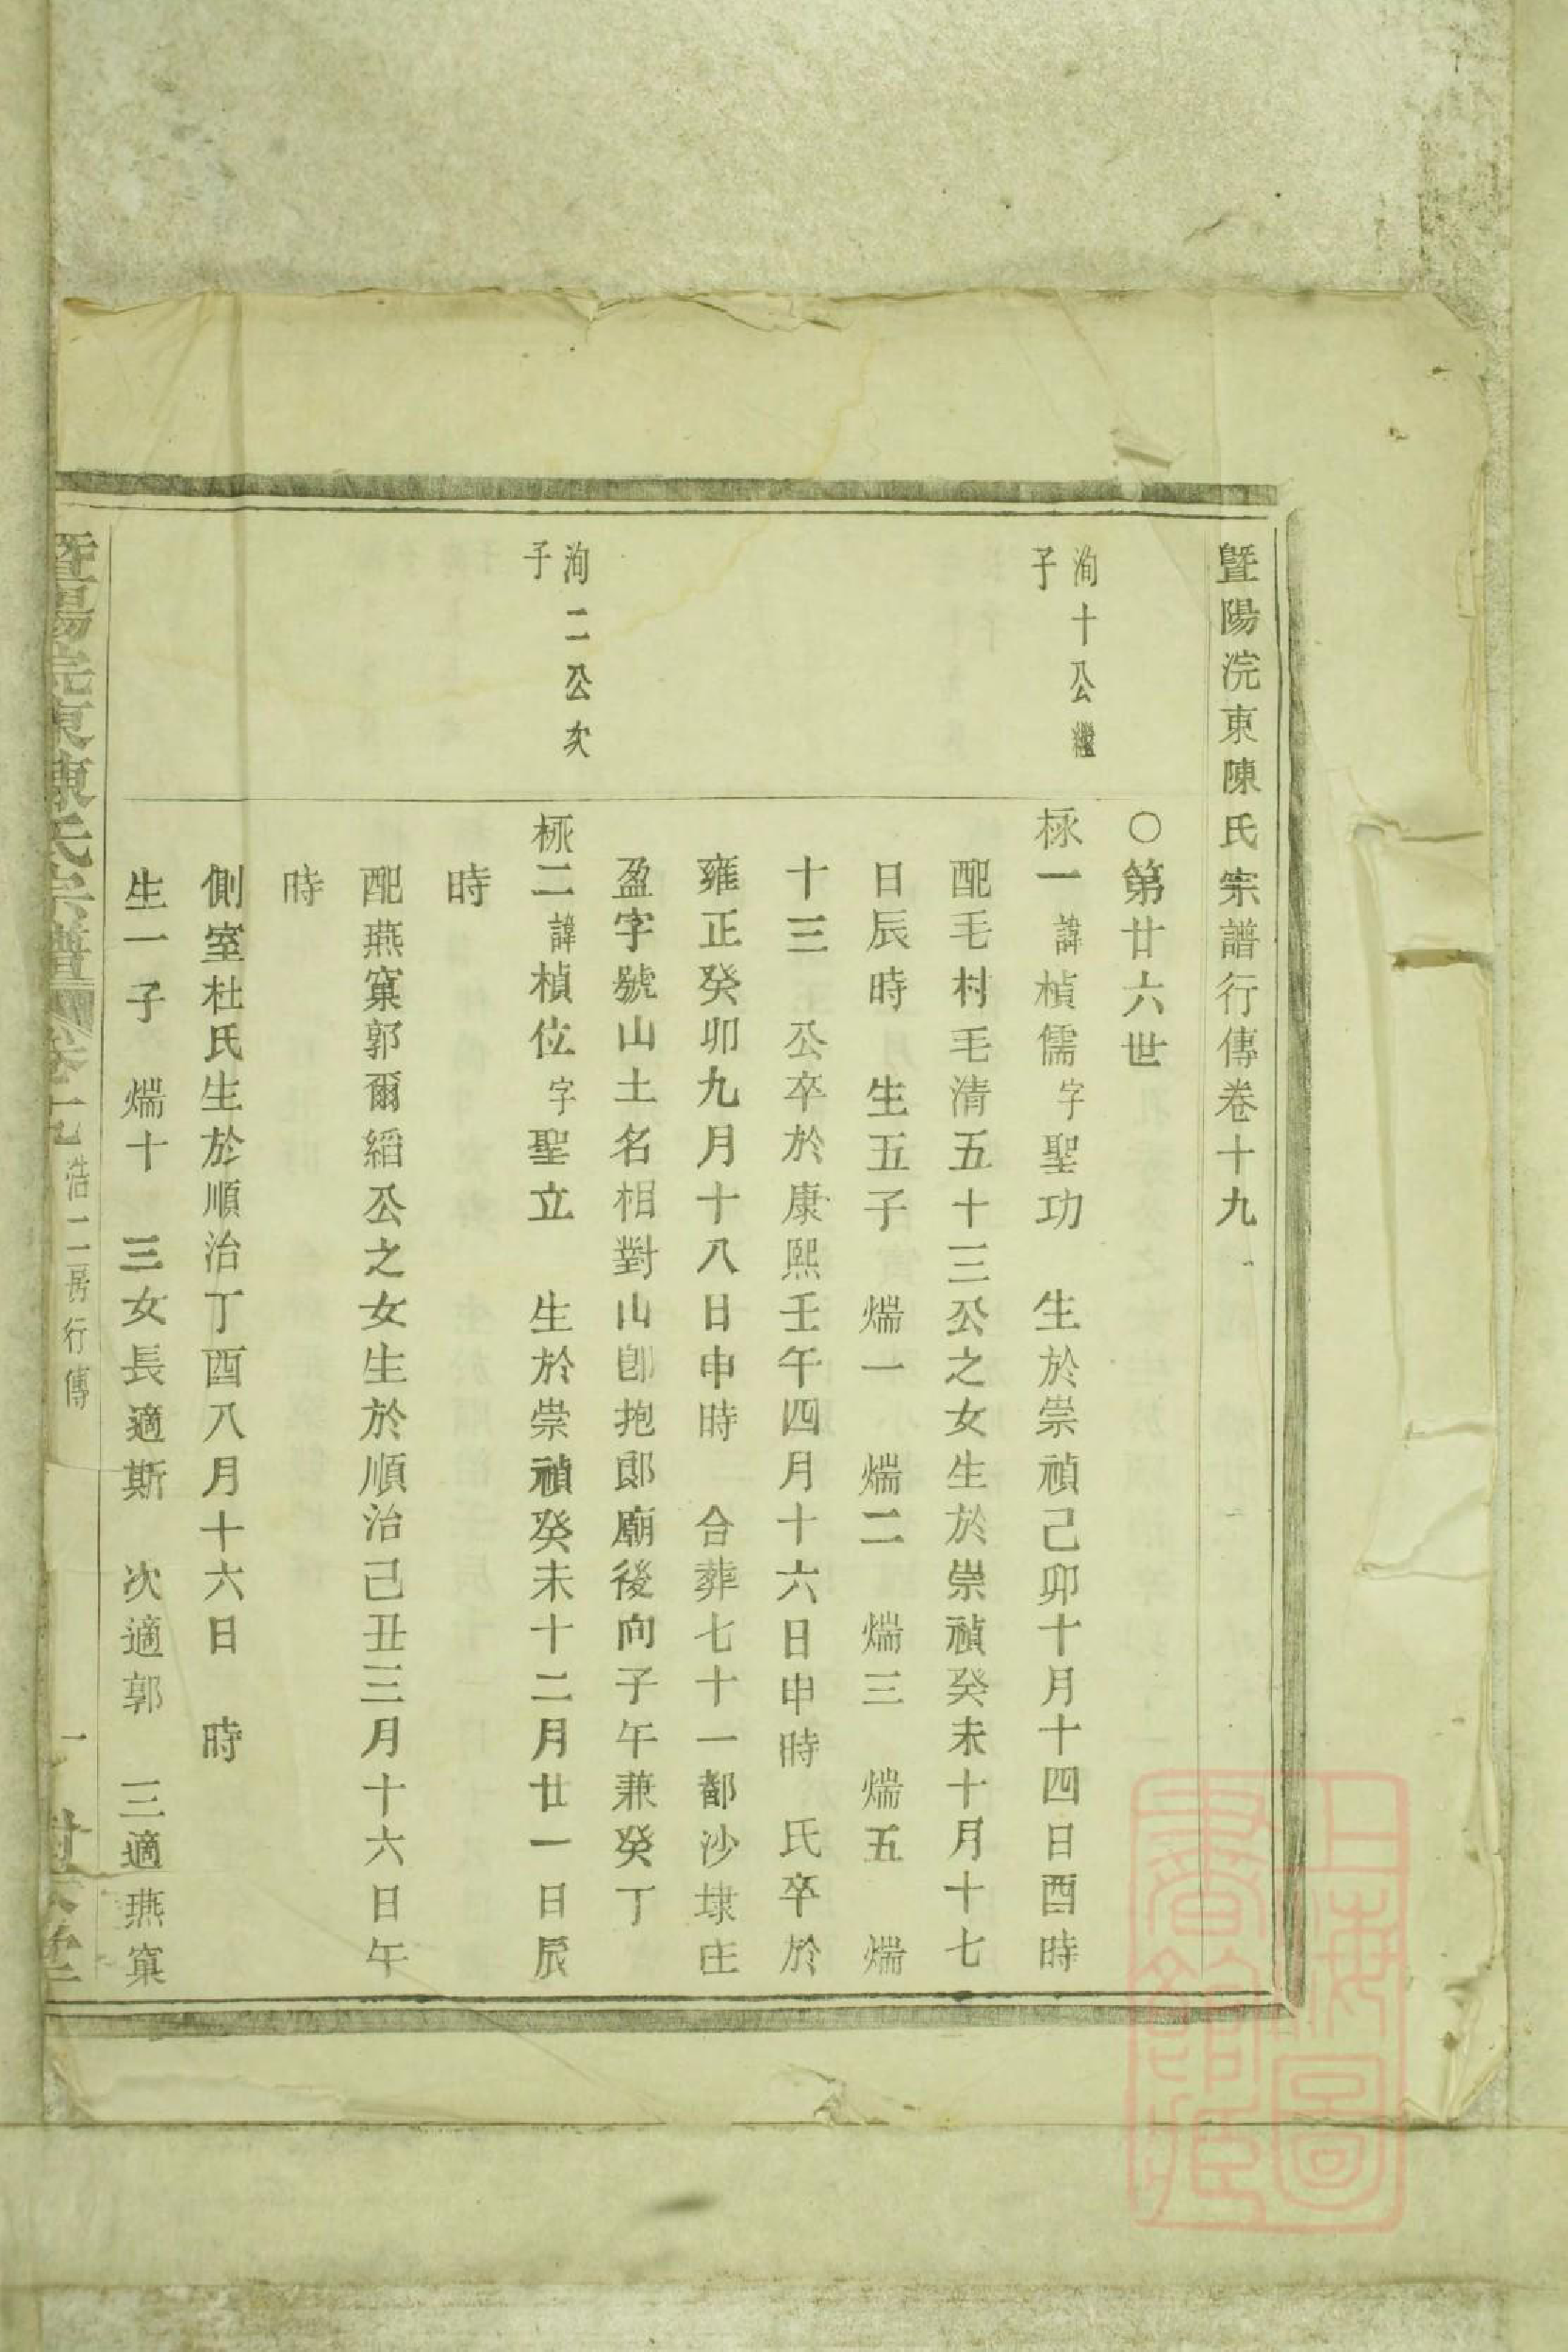 暨陽浣東陳氏宗譜行傳卷十九
○第廿六世
洵十公繼
子
極一諱楨儒字聖功 生於崇禎己卯十月十四日酉時
配毛村毛清五十三公之女生於崇禎癸未十月十七
日辰時 生五子 煓一 煓二 煓三 煓五 煓
十三 公卒於康熙壬午四月十六日申時 氏卒於
雍正癸卯九月十八日申時 合葬七十一都沙埭庄
盈字號山土名相對山卽抱郞廟後向子午兼癸丁
洵二公次
子
極二諱楨位字聖立 生於崇禎癸未十二月廿一日辰
時
配燕窠郭爾縚公之女生於順治己丑三月十六日午
時
側室杜氏生於順治丁酉八月十六日 時
生一子 煓十 三女長適斯 次適郭 三適燕窠
暨陽浣東陳氏宗譜 卷十九 浩二房行傳 一
上海圖書館藏